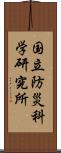 国立防災科
学研究所